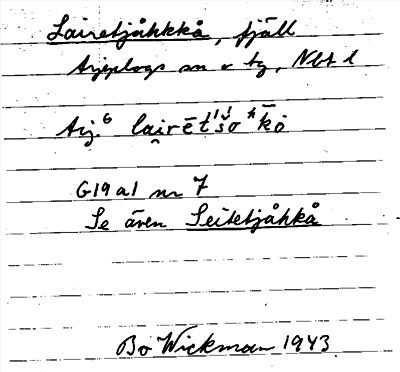 Lairetjåhkkå, fjäll
Arjeplogs sn o tg, Nbt l
Arj. lairētšo kō
G19 a1 nr 7
Se även Seitetjåhkå
Bo Wickman 1943